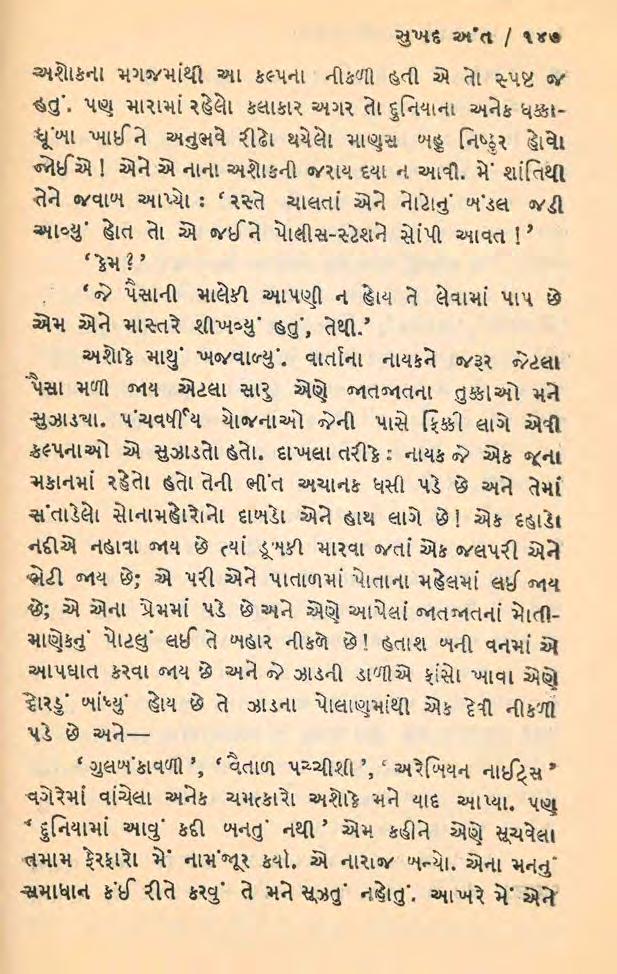 સુખદ અંત / ૧૪૭
અશોકના મગજમાંથી આ કલ્પના નીકળી હતી એ તો સ્પષ્ટ જ
હતું. પણ મારામાં રહેલો કલાકાર અગર તો દુનિયાના અનેક ધક્કા-
ધૂંબા ખાઈને અનુભવે રીઢો થયેલો માણુસ બહુ નિષ્ઠુર હોવો
જોઈએ! એને એ નાના અશોકની જરાય દયા ન આવી. મેં શાંતિથી
તેને જવાબ આપ્યો : ‘રસ્તે ચાલતાં એને નોટોનું બંડલ જડી
આવ્યું હોત તો એ જઈને પોલીસ-સ્ટેશને સોંપી આવત!’
‘કેમ?’
‘જે પૈસાની માલેકી આપણી ન હોય તે લેવામાં પાપ છે
એમ એને માસ્તરે શીખવ્યું હતું, તેથી.’
અશોકે માથું ખજવાળ્યું. વાર્તાના નાયકને જરૂર જેટલા
પૈસા મળી જાય એટલા સારુ એણે જાતજાતના તુક્કાઓ મને
સુઝાડ્યા. પંચવર્ષીય યોજનાઓ જેની પાસે ફિક્કી લાગે એવી
કલ્પનાઓ એ સુઝાડતો હતો. દાખલા તરીકે : નાયક જે એક જૂના
મકાનમાં રહેતો હતો તેની ભીંત અચાનક ધસી પડે છે અને તેમાં
સંતાડેલો સોનામહોરોનો દાબડો એને હાથ લાગે છે! એક દહાડો
નદીએ નહાવા જાય છે ત્યાં ડૂબકી મારવા જતાં એક જલપરી એને
ભેટી જાય છે; એ પરી એને પાતાળમાં પોતાના મહેલમાં લઈ જાય
છે; એ એના પ્રેમમાં પડે છે અને એણે આપેલાં જાતજાતનાં મોતી-
માણેકનું પોટલું લઈ તે બહાર નીકળે છે! હતાશ બની વનમાં એ
આપઘાત કરવા જાય છે અને જે ઝાડની ડાળીએ ફાંસો ખાવા એણે
દોરડું બાંધ્યું હોય છે તે ઝાડના પોલાણમાંથી એક દેવી નીકળી
પડે છે અને—
‘ગુલબંકાવળી’, ‘વૈતાળ પચ્ચીશી’, ‘અરેબિયન નાઈટ્સ’
વગેરેમાં વાંચેલા અનેક ચમત્કારો અશોકે મને યાદ આપ્યા. પણ
‘દુનિયામાં આવું કદી બનતું નથી’ એમ કહીને એણે સૂચવેલા
તમામ ફેરફારો મેં નામંજૂર કર્યા. એ નારાજ બન્યો. એના મનનું
સમાધાન કંઈ રીતે કરવું તે મને સૂઝતું નહોતું. આખરે મેં એને